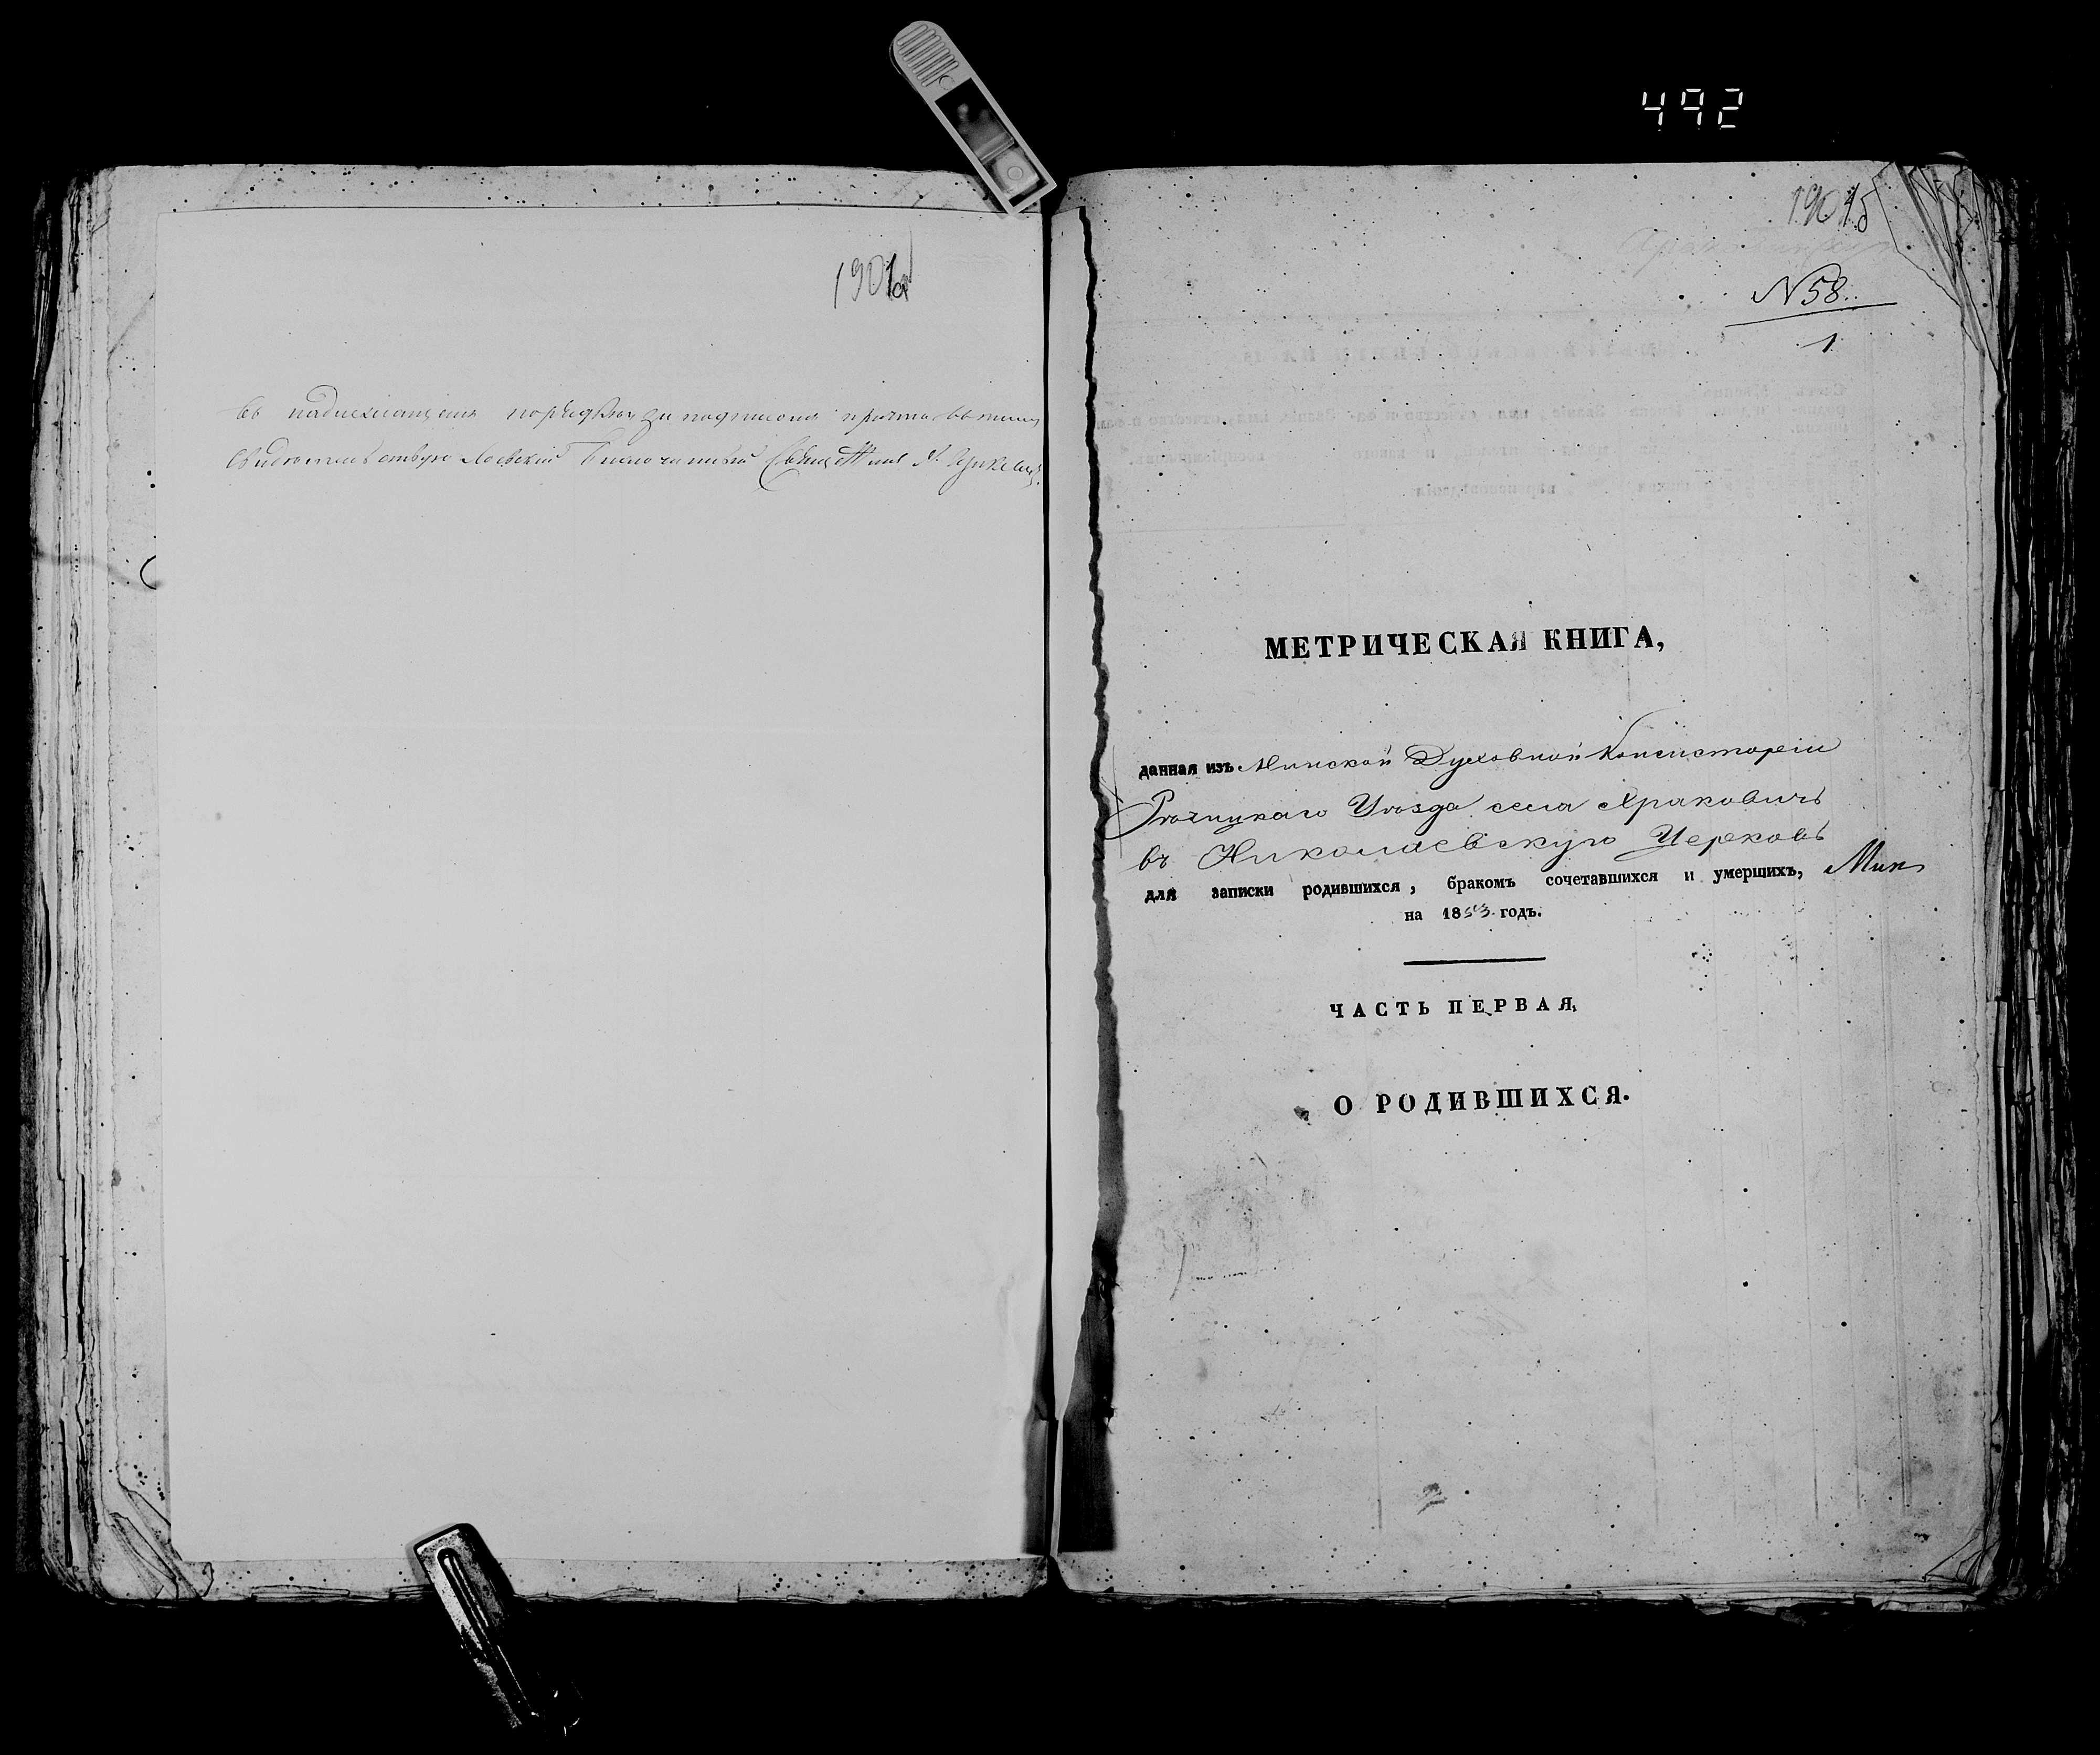 492
1901а
въ надлежащемъ порядкѣ за подписомъ причта въ томъ
свидѣтельствую Лоевскій Благочинный Священникъ
1901б
N 58.
1
МЕТРИЧЕСКАЯ КНИГА,
данная изъ Минской Духовной Консисторіи
Рѣчицкаго Уѣзда села Храковичъ
въ Николаевскую Церковь
для записки родившихся, бракомъ сочетавшихся и умерщихъ,
на 1853 годъ.
ЧАСТЬ ПЕРВАЯ,
О РОДИВШИХСЯ.